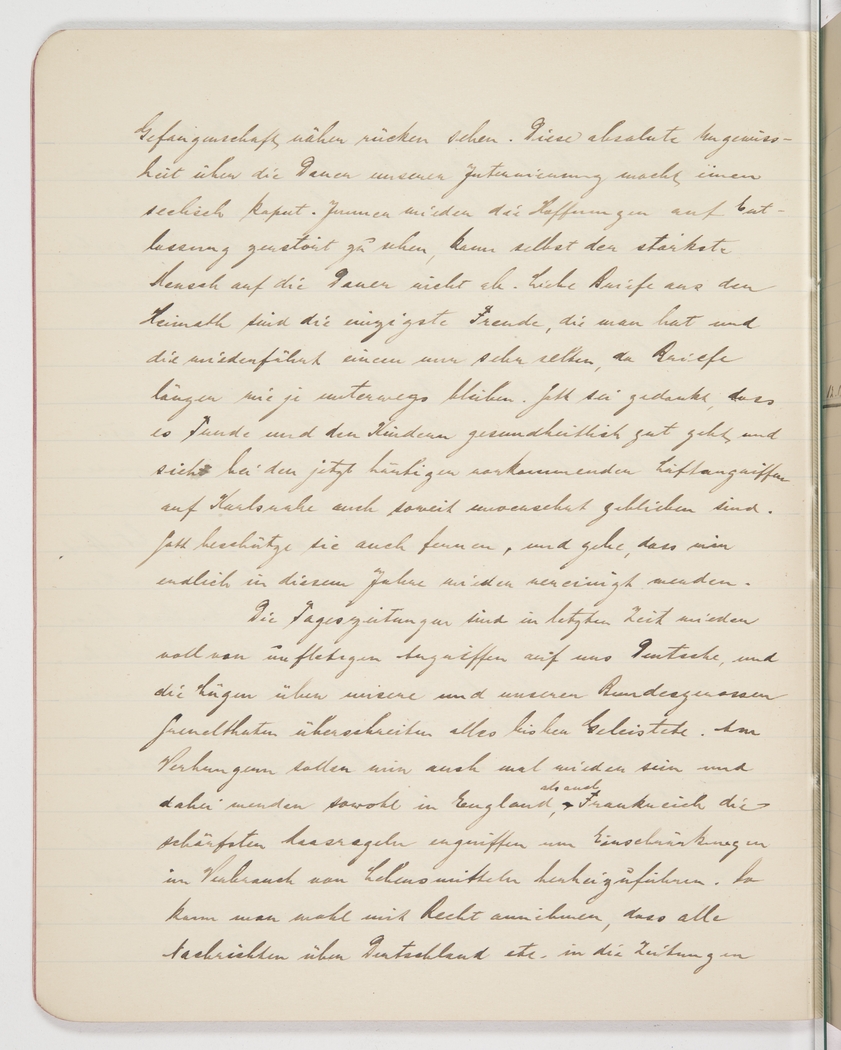 Gefangenschaft näher rücken sehen. Diese absolute Ungewiss-
heit über die Dauer unserer Internierung macht einen
seelisch kaput. Immer wieder die Hoffnungen auf Ent-
lassung zerstört zu sehen, kann selbst der stärkste
Mensch auf die Dauer nicht ab. Liebe Briefe aus der
Heimath sind die einzigste Freude, die man hat und
die wiederfährt einem nur sehr selten, da Briefe
länger wie je unterwegs bleiben. Gott sei gedankt, dass
es und den Kindern gesundheitlich gut geht, und
sie bei den jetzt häufigen vorkommenden Luftangriffen
auf Karlsruhe auch soweit unversehrt geblieben sind.
Gott beschütze sie auch ferner, und gebe, dass wir
endlich in diesem Jahre wieder vereinigt werden.
Die Tageszeitungen sind in letzter Zeit wieder
voll von unflätigen Angriffen auf uns Deutsche, und
die Lügen über unsere und unserer Bundesgenossen
Greuelthaten überschreiten alles bisher Geleistete. Am
Verhungern sollen wir auch mal wieder sein und
dabei werden sowohl in England, als auch Frankreich die
schärfsten Massregeln ergriffen um Einschränkungen
im Verbrauch von Lebensmitteln herbeizuführen. So
kann man wohl mit Recht annehmen, dass alle
Nachrichten über Deutschland etc. in die Zeitungen